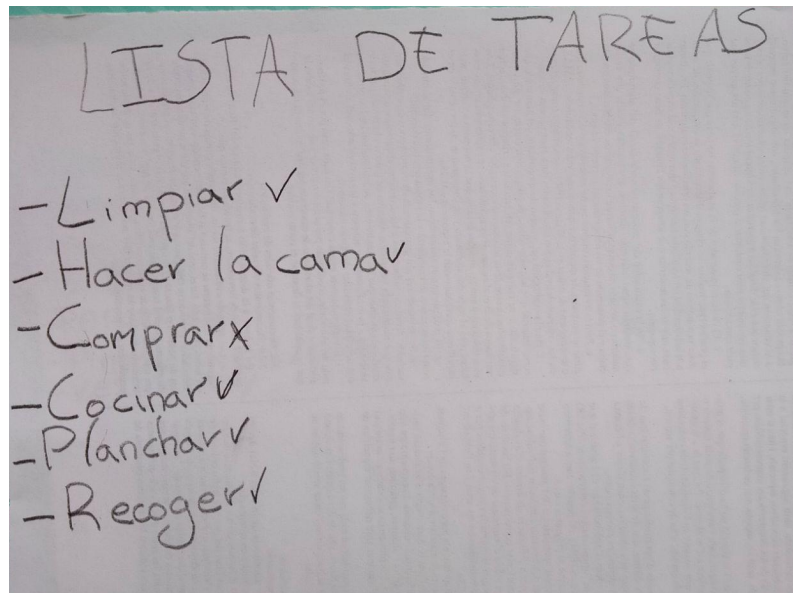 LISTA DE TAREAS
- Limpiar ✓
- Hacer la cama ✓
- Comprar x
- Cocinar ✓
- Planchar ✓
- Recoger ✓